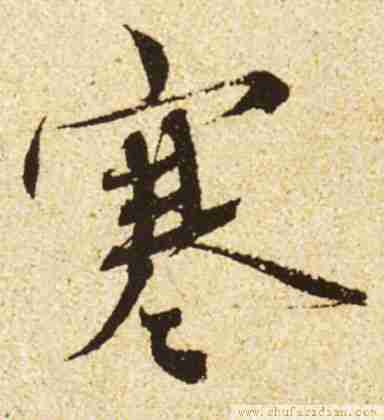 寒
www.shufazidian.com